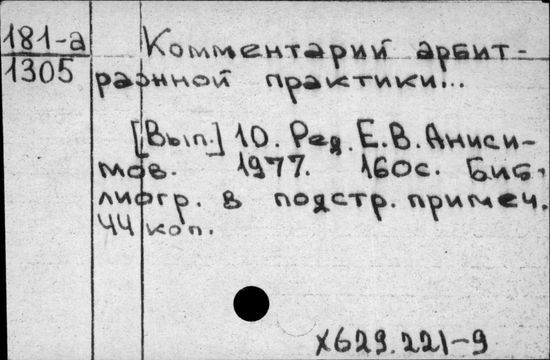 181-а
1305
Комментарий арбит-
ражной практики...
[Вып.] 10. Ред. Е.В. Аниси-
мов. 1977. 160с. Биб-
лиогр. в подстр. примеч.
44 коп.
X629.221-9